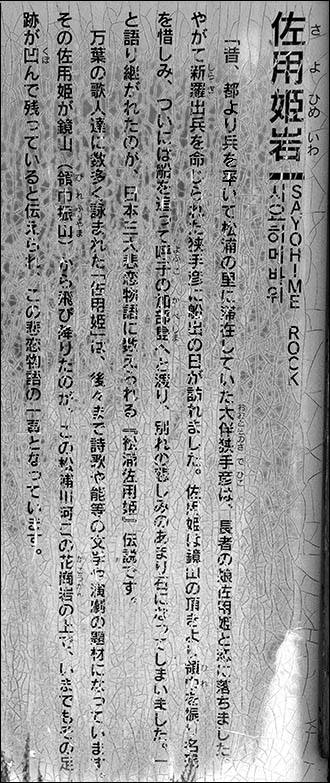 佐用姫岩
さよひめいわ
SAYOHIME ROCK
사요히메바위
「昔、都より兵を率いて松浦の里に滞在していた大伴狭手彦は、長者の娘佐用姫と恋に落ちました。
やがて新羅出兵を命じられた狭手彦に船出の日が訪れました。佐用姫は鏡山の頂きより領巾を振り名残
を惜しみ、ついには船を追って呼子の加部島へと渡り、別れの悲しみのあまり石になってしまいました。」
と語り継がれたのが、日本三大悲恋物語に数えられる『松浦佐用姫』伝説です。
万葉の歌人達に数多く詠まれた「佐用姫」は、後々まで詩歌や能等の文学や演劇の題材になっています。
その佐用姫が鏡山（領巾振山）から飛び降りたのが、この松浦川河この花崗岩の上で、いまでもその足
跡が凹んで残っていると伝えられ、この悲恋物語の一喜となっています。